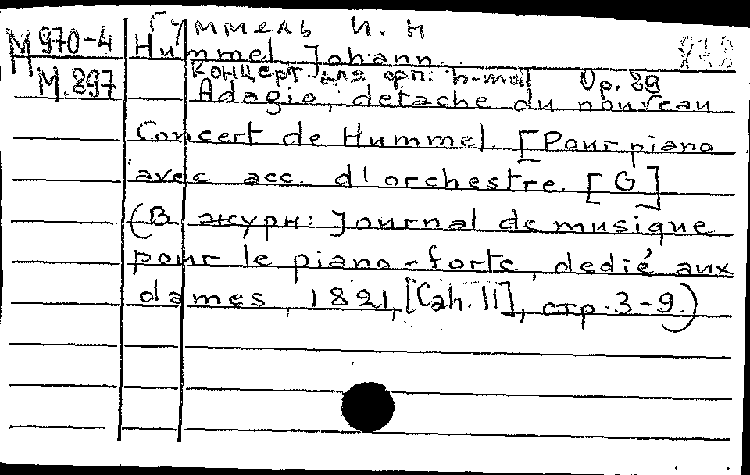 Гуммель И. Н
М 970-4
Hummel, Johann.
Концерт для орп: h-mol Op. 89
М.297
Adagio, detache du nouveau
Concert de Hummel. [Pour piano
avec acc. d'orchestre. [G]
(В журн: Journal de musique
pour le piano-forte, dedié aux
dames, 1821, [Cah. II], стр. 3-9.)